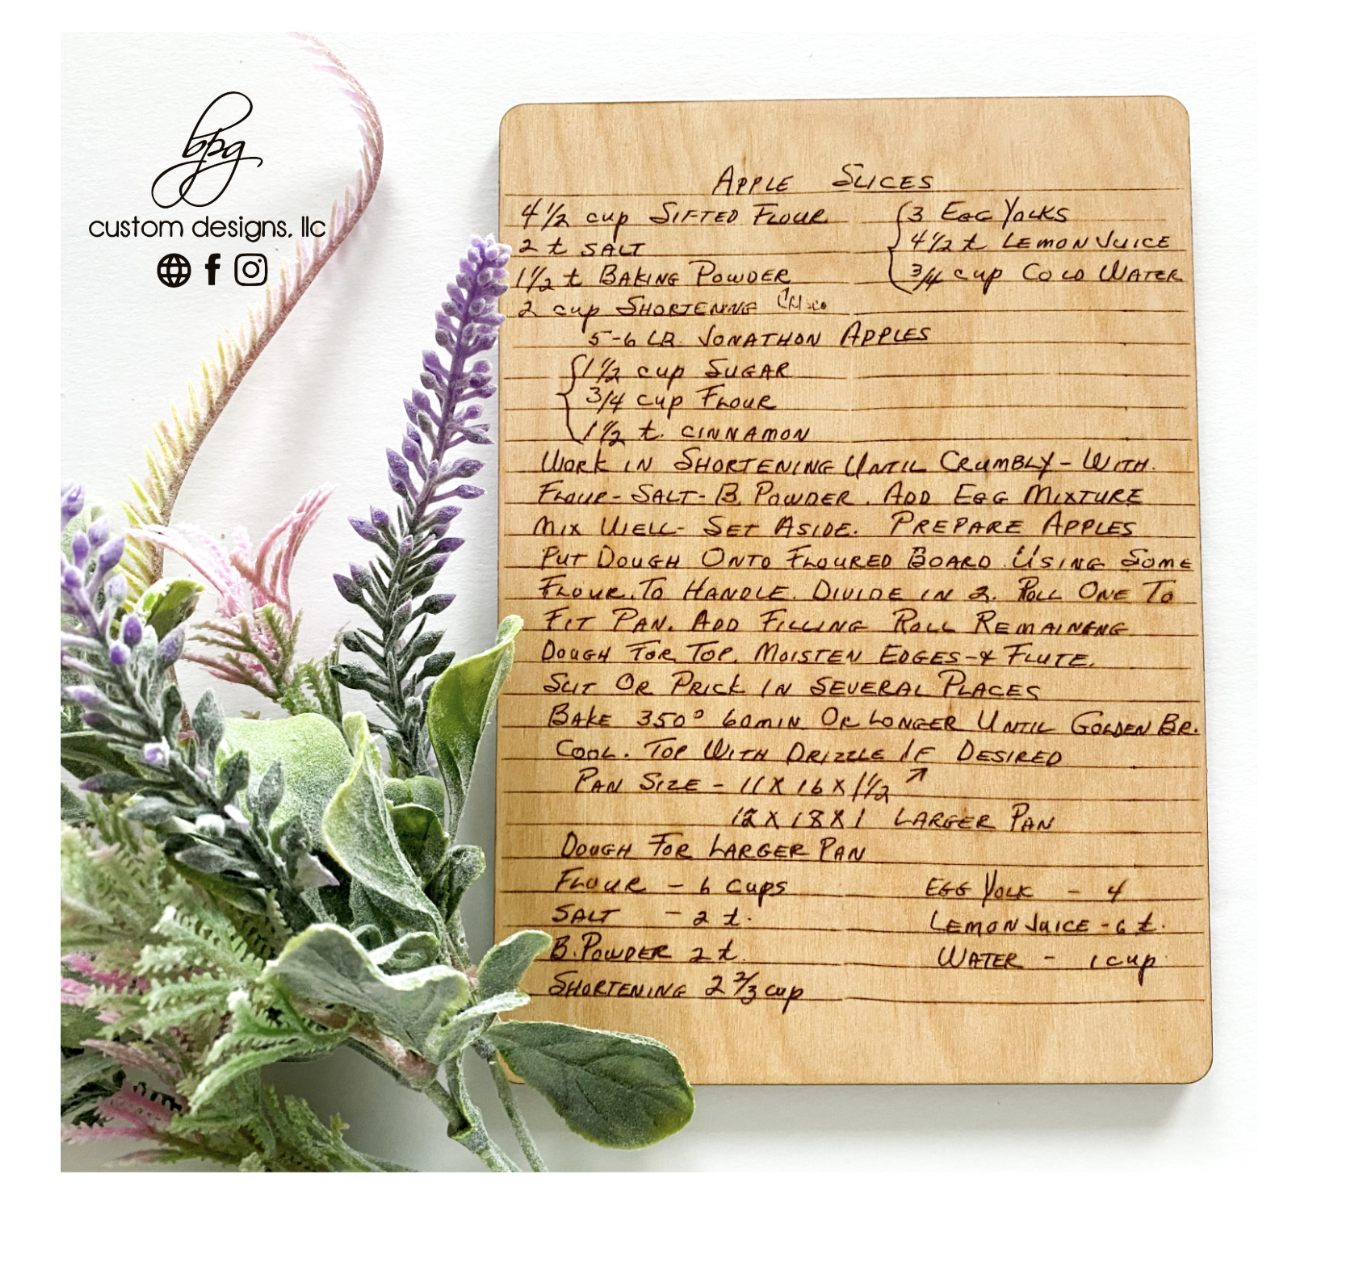 bpg
custom designs, llc
APPLE SLICES
4 1/2 cup SIFTED FLOUR
2 t SALT
1 1/2 t BAKING POWDER
2 cup SHORTENNG
{3 EGG YOLKS
4 1/2 t LEMON JUICE
3/4 cup COLD WATER
5-6 LB. JONATHON APPLES
{1 1/2 cup SUGAR
3/4 cup FLOUR
1 1/2 t. CINNAMON
WORK IN SHORTENING UNTIL CRUMBLY - WITH.
FLOUR - SALT - B. POWDER. ADD EGG MIXTURE
MIX WELL - SET ASIDE. PREPARE APPLES
PUT DOUGH ONTO FLOURED BOARD. USING SOME
FLOUR. TO HANDLE. DIVIDE IN 2. ROLL ONE TO
FIT PAN. ADD FILLING ROLL REMAINENG
DOUGH FOR TOP. MOISTEN EDGES - & FLUTE.
SLIT OR PRICK IN SEVERAL PLACES
BAKE 350° 60 MIN OR LONGER UNTIL GOLDEN BR.
COOL. TOP WITH DRIZZLE IF DESIRED
PAN SIZE - 11 X 16 X 1 1/2 ↗
12 X 18 X 1 LARGER PAN
DOUGH FOR LARGER PAN
FLOUR - 6 cups
SALT - 2 t.
B. POWDER 2 t.
SHORTENING 2 2/3 cup
EGG YOLK - 4
LEMON JUICE - 6 t.
WATER - 1 cup